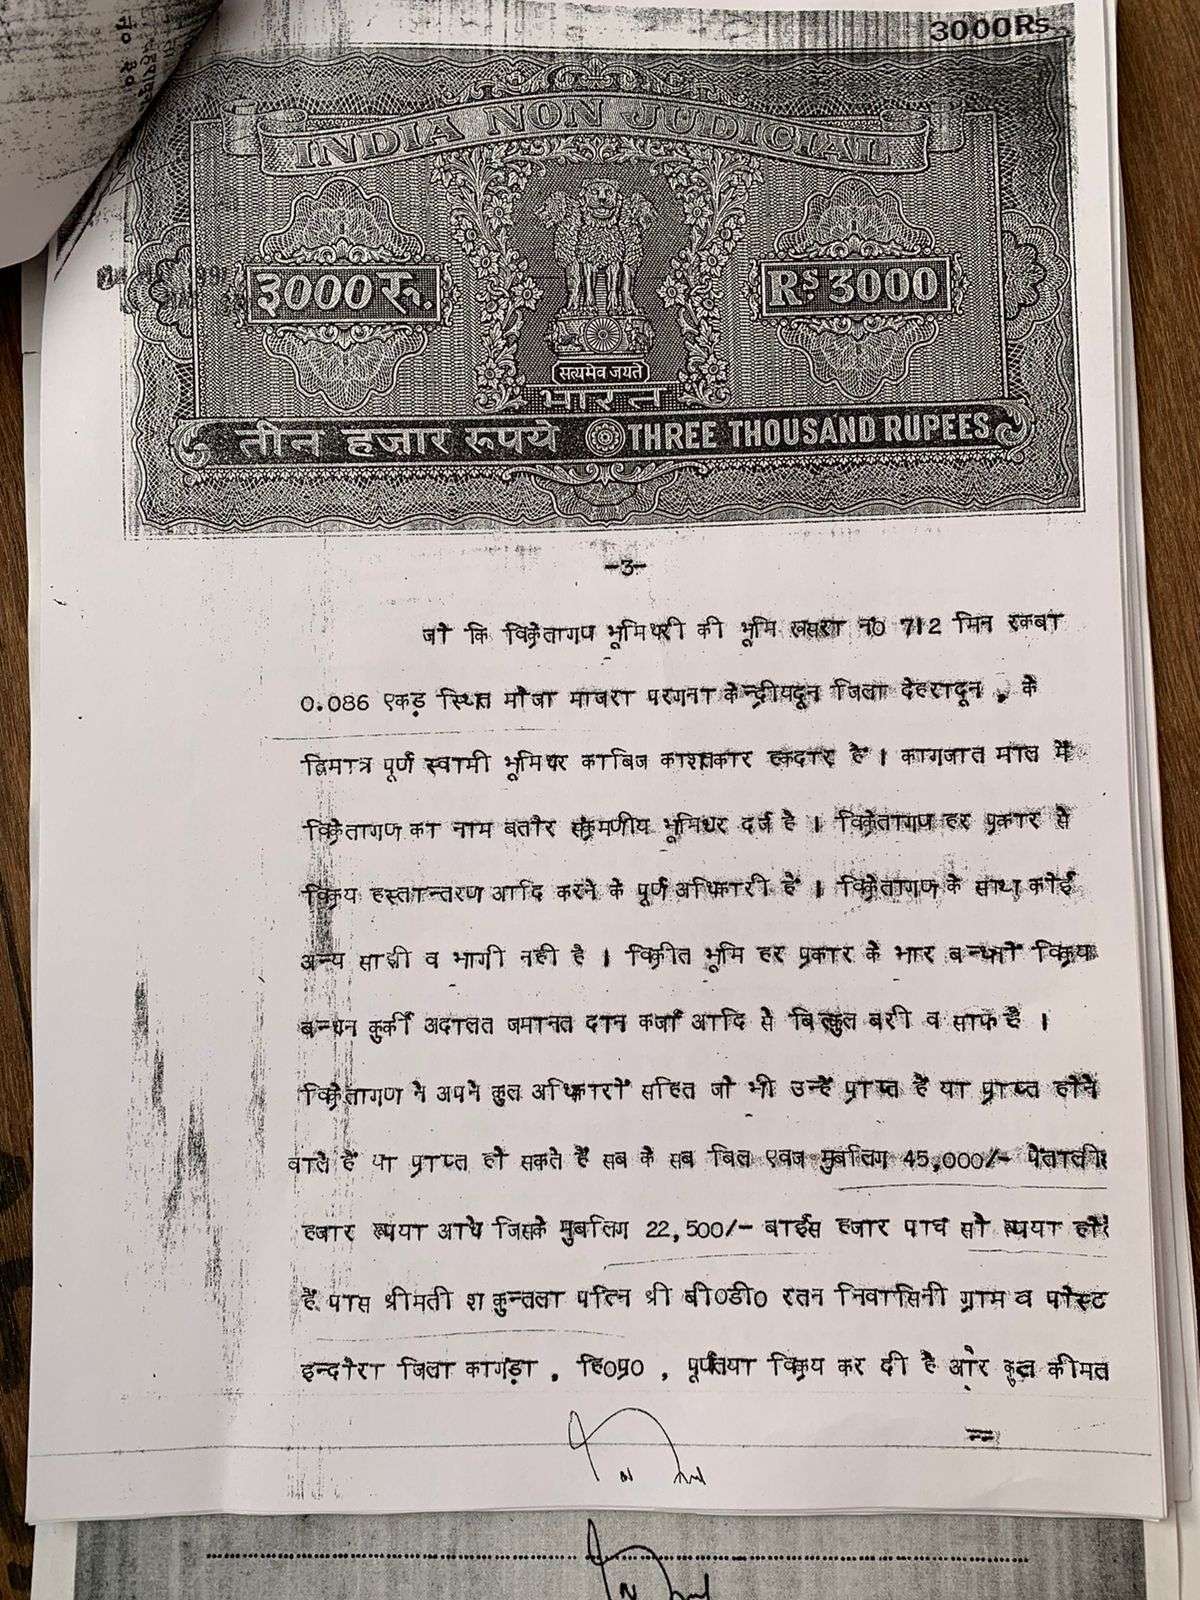 3000Rs.
INDIA NON JUDICIAL
३000 रु.
Rs 3000
सत्यमेव जयते
भारत
तीन हजार रूपये THREE THOUSAND RUPEES
-3-
जो कि विक्रेतागण भूमिधरी की भूमि खसरा न0 712 मिन रकबा
0.086 एकड़ स्थित मौजा माजरा परगना केन्द्रीयदून जिला देहरादून , के
पूर्ण स्वामी भूमिधर काबिज काश्तकार हकदार है । कागजात माल में
विक्रेतागण का नाम बतौर संक्रमणीय भूमिधर दर्ज है । विक्रेतागण हर प्रकार से
विक्रय हस्तान्तरण आदि करने के पूर्ण अधिकारी हैं । विक्रेतागण के साथ कोई
अन्य साझी व भागी नही है । विक्रीत भूमि हर प्रकार के भार बन्धनों विक्रय
बन्धन कुर्की अदालत जमानत दान कर्जा आदि से बिल्कुल बरी व साफ है ।
विक्रेतागण ने अपने कुल अधिकारों सहित जो भी उन्हें प्राप्त हैं या प्राप्त होने
वाले हैं या प्राप्त हो सकते हैं सब के सब बिल एवज मुबलिग 45,000/- पैताली
हजार रूपया आधे जिसके मुबलिग 22,500/- बाईस हजार पाच सौ रूपया होते
हैं पास श्रीमती शकुन्तला पत्नि श्री बी0डी0 रतन निवासिनी ग्राम व पोस्ट
इन्दौरा जिला कागंड़ा , हि0प्र0 , पूर्णतया विक्रय कर दी है और कुल कीमत